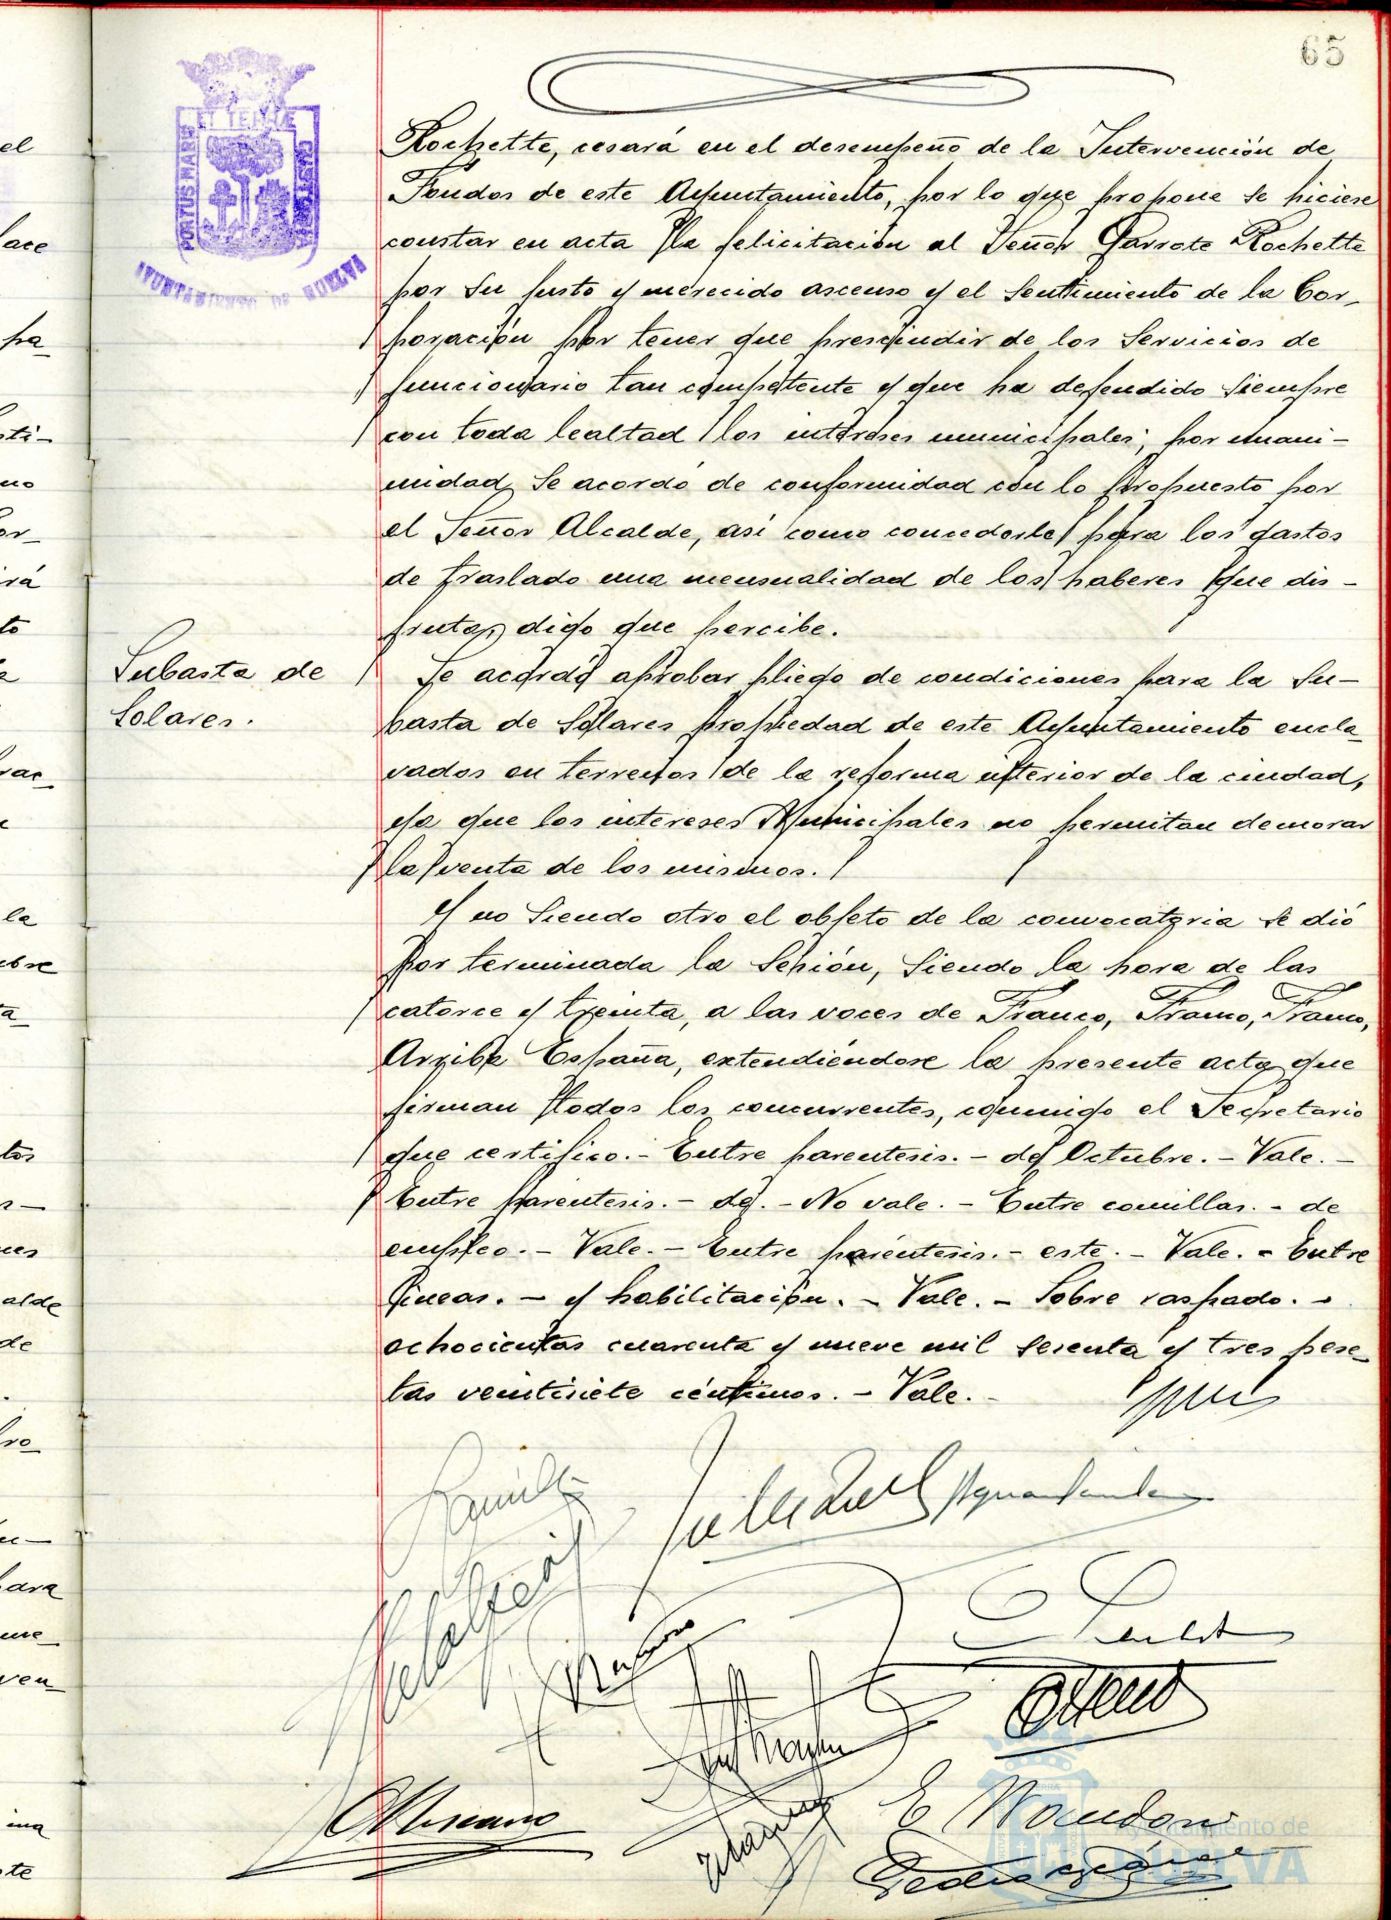 65
PORTUS MARIS ET TERRÆ CUSTODIA
AYUNTAMIENTO DE HUELVA
Rochette, cesará en el desempeño de la Intervención de
Fondos de este Ayuntamiento, por lo que propone se hiciese
constar en acta la felicitación al Señor Garrote Rochette
por su justo y merecido ascenso y el sentimiento de la Cor-
poración por tener que prescindir de los servicios de
funcionario tan competente y que ha defendido siempre
con toda lealtad los intereses municipales; por unani-
midad se acordó de conformidad con lo propuesto por
el Señor Alcalde, así como concederle para los gastos
de traslado una mensualidad de los haberes que dis-
fruta, digo que percibe.
Subasta de
Solares.
Se acordó aprobar pliego de condiciones para la su-
basta de solares propiedad de este Ayuntamiento encla-
vados en terrenos de la reforma interior de la ciudad,
ya que los intereses Municipales no permitan demorar
la venta de los mismos.
Y no siendo otro el objeto de la convocatoria se dió
por terminada la sesión, siendo la hora de las
catorce y treinta, a las voces de Franco, Franco, Franco,
Arriba España, extendiéndose la presente acta que
firman todos los concurrentes, conmigo el Secretario
que certifico.- Entre parentesis.- de Octubre.- Vale.-
Entre parentesis.- de.- No vale.- Entre comillas.- de
empleo.- Vale.- Entre paréntesis.- este.- Vale.- Entre
lineas.- y habilitación.- Vale.- Sobre raspado.-
ochocientas cuarenta y nueve mil sesenta y tres pese-
tas veintisiete céntimos.- Vale.-
Ayuntamiento de
HUELVA